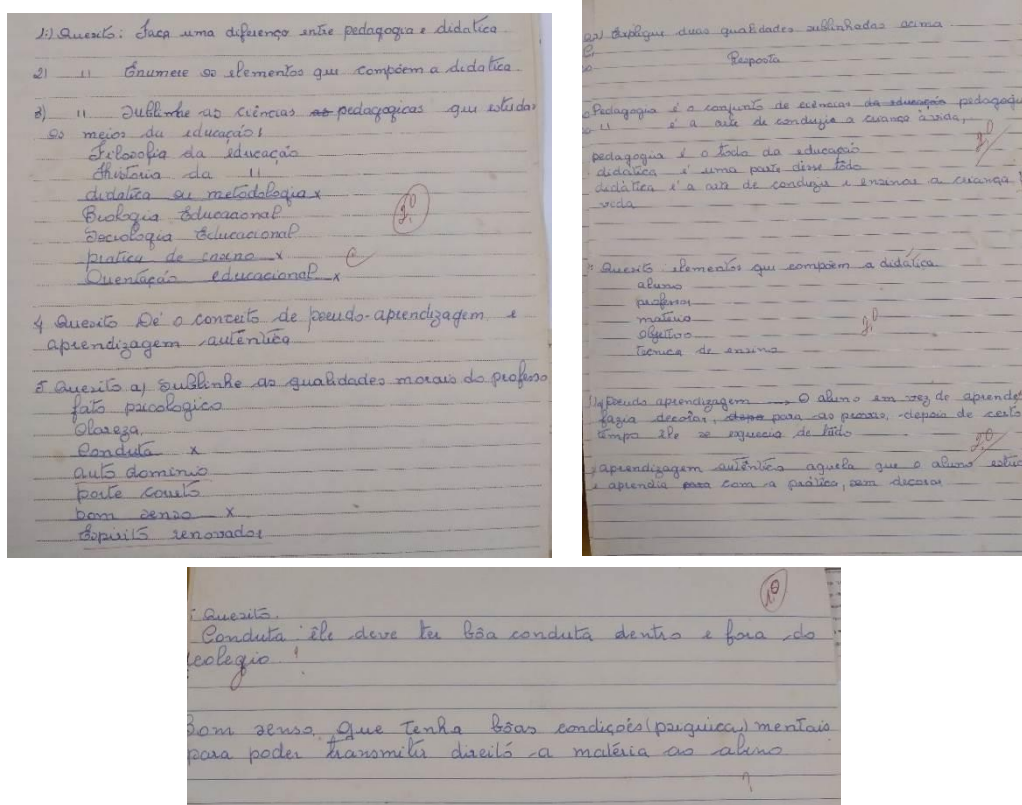 1:) Quesito: Faça uma diferença entre pedagogia e didatica
2) " Enumere os elementos que compõem a didatica.
3) " Sublinhe as ciências as pedagogicas que estudas
os meios da educação:
Filosofia da educação
História da "
didatica ou metodologia x
Biologia Educacional
Sociologia Educacional
pratica de ensino x
Orientação educacional x
4 Quesito Dê o conceito de pseudo-aprendizagem e
aprendizagem autêntica
5 Quesito a) Sublinhe as qualidades morais do profess
fato psicologico
Clareza
Conduta x
auto dominio
porte correto
bom senso x
Espirito renovador
2,0
Explique duas qualidades sublinhadas acima
Resposta
Pedagogia é o conjunto de ciências da educação pedagogi
" é a arte de conduzir a criança à vida,
pedagogia é o todo da educação
didática é uma parte disse todo
didática é a arte de conduzir e ensinar a criança
vida
2,0
Quesito elementos que compõem a didática
aluno
professor
matéria
Objetivo
tecnica de ensino
2,0
pseudo aprendizagem O aluno em vez de aprender
fazia decorar, para as provas, depois de certo
tempo êle se esquecia de tudo
2,0
aprendizagem autêntica aquela que o aluno estud
e aprendia para com a prática, sem decorar
Quesito.
10
Conduta êle deve ter bôa conduta dentro e fora do
colegio
Bom senso. Que tenha bôas condições (psiquica) mentais
para poder transmitir direitó a matéria ao aluno